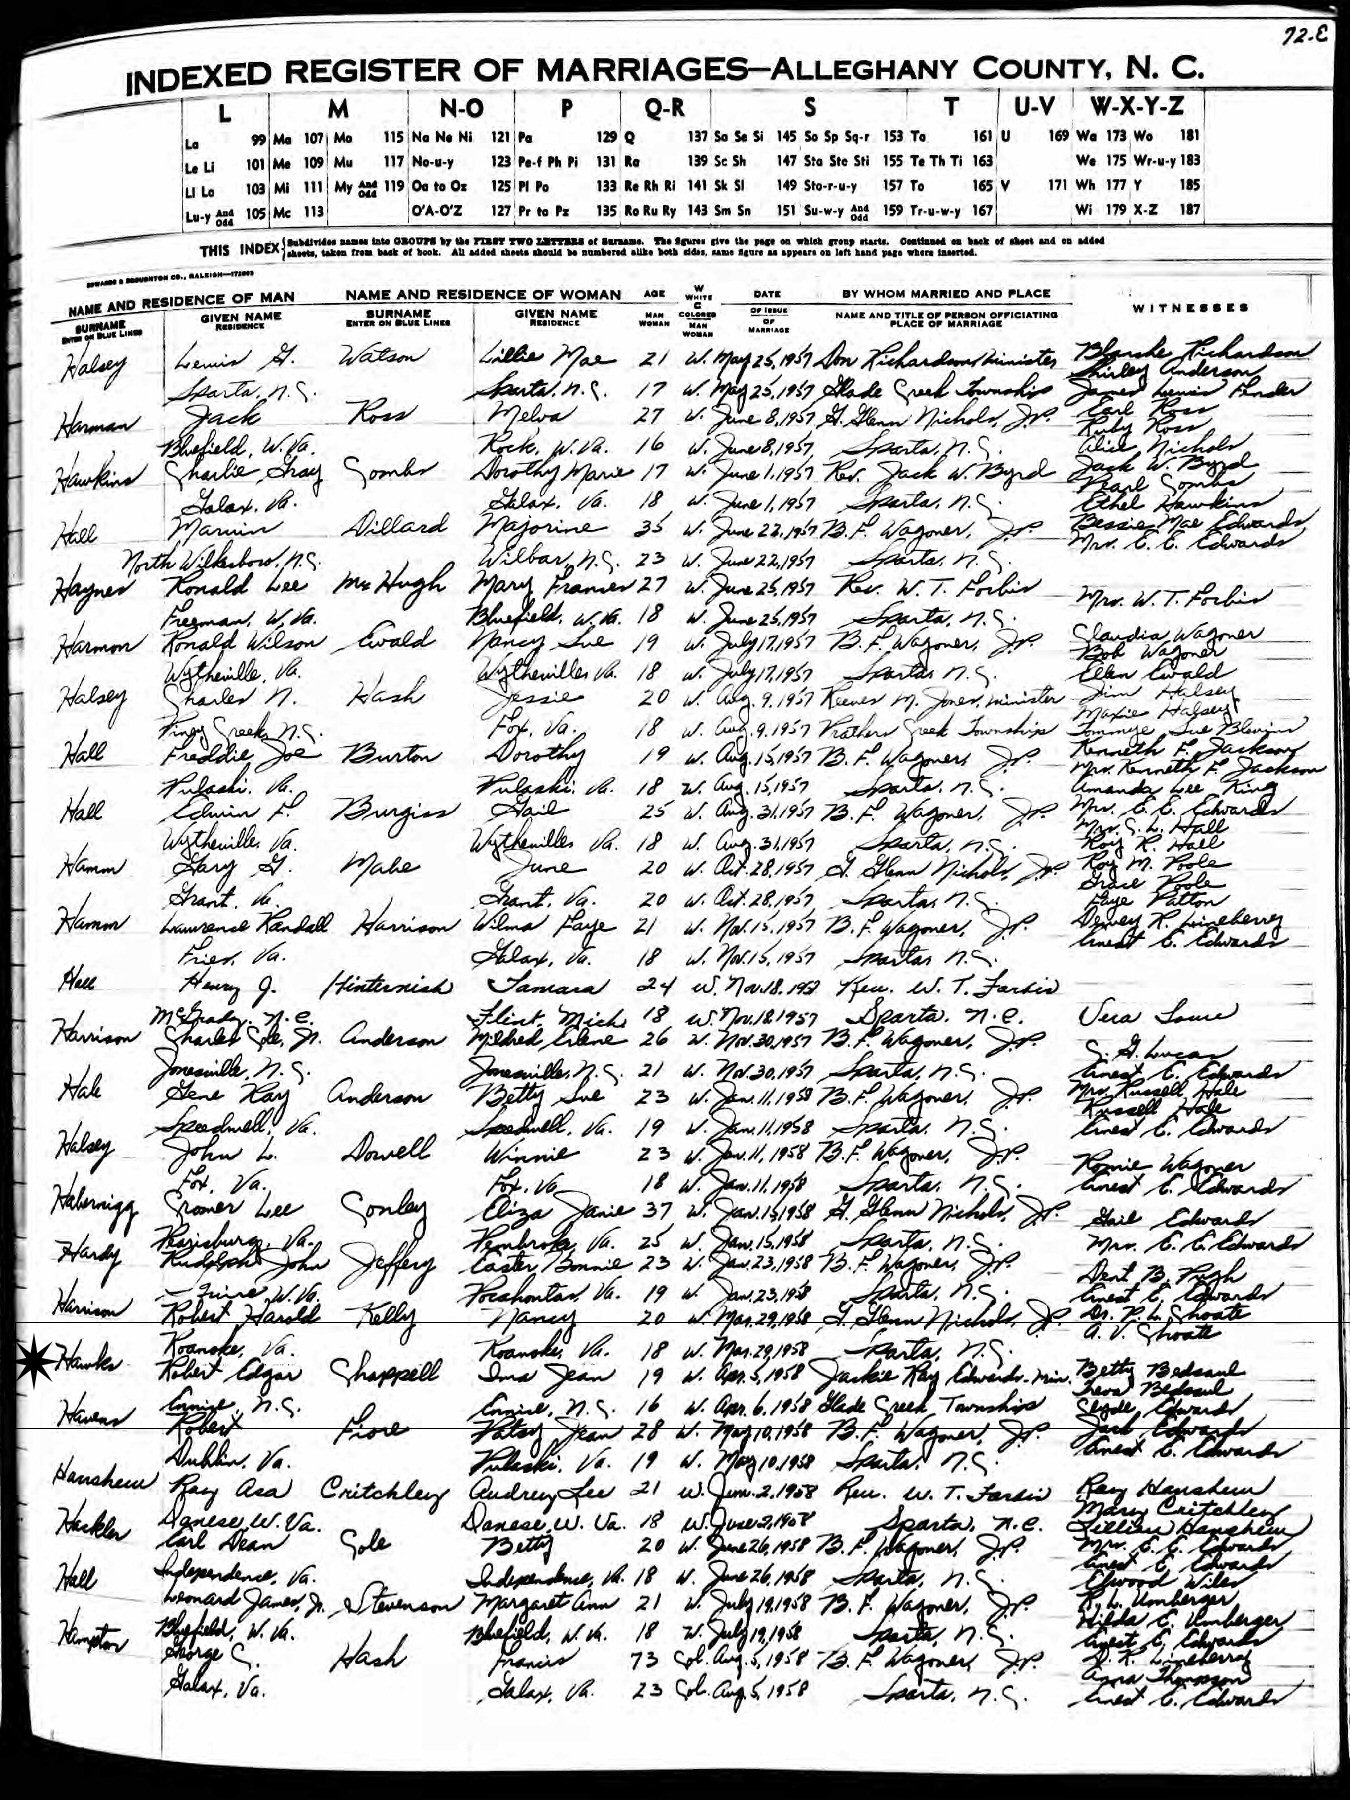 72-E
INDEXED REGISTER OF MARRIAGES—ALLEGHANY COUNTY, N. C.
L M N-O P Q-R S T U-V W-X-Y-Z
La 99 Ma 107 Mo 115 Na Ne Ni 121 Pa 129 Q 137 Sa Se Si 145 So Sp Sq-r 153 Ta 161 U 169 Wa 173 Wo 181
Le Li 101 Me 109 Mu 117 No-u-y 123 Pe-f Ph Pi 131 Ra 139 Sc Sh 147 Sta Ste Sti 155 Te Th Ti 163 We 175 Wr-u-y 183
Ll Lo 103 Mi 111 My And Odd 119 Oa to Oz 125 Pl Po 133 Re Rh Ri 141 Sk Sl 149 Sto-r-u-y 157 To 165 V 171 Wh 177 Y 185
Lu-y And Odd 105 Mc 113 O'A-O'Z 127 Pr to Pz 135 Ro Ru Ry 143 Sm Sn 151 Su-w-y And Odd 159 Tr-u-w-y 167 Wi 179 X-Z 187
THIS INDEX Subdivides names into GROUPS by the FIRST TWO LETTERS of Surname. The figures give the page on which group starts. Continued on back of sheet and on added
sheets, taken from back of book. All added sheets should be numbered alike both sides, same figure as appears on left hand page where inserted.
EDWARDS & BROUGHTON CO., RALEIGH
NAME AND RESIDENCE OF MAN NAME AND RESIDENCE OF WOMAN AGE W WHITE C COLORED DATE BY WHOM MARRIED AND PLACE WITNESSES
SURNAME ENTER ON BLUE LINES GIVEN NAME RESIDENCE SURNAME ENTER ON BLUE LINES GIVEN NAME RESIDENCE MAN WOMAN MAN WOMAN OF ISSUE OF MARRIAGE NAME AND TITLE OF PERSON OFFICIATING PLACE OF MARRIAGE
Halsey Lewis G. Watson Lillie Mae 21 W. May 25, 1957 Don Richardson, minister Blanche Richardson
Shirley Anderson
Sparta, N.C. Sparta, N.C. 17 W. May 25, 1957 Glade Creek Township James Lewis Fender
Harman Jack Ross Melva 27 W. June 8, 1957 G. Glenn Nichols, J.P. Carl Ross
Ruby Ross
Bluefield, W. Va. Rock, W. Va. 16 W. June 8, 1957 Sparta, N.C. Alice Nichols
Hawkins Charlie Gray Combs Dorothy Marie 17 W. June 1, 1957 Rev. Jack W. Byrd Jack W. Byrd
Pearl Combs
Galax, Va. Galax, Va. 18 W. June 1, 1957 Sparta, N.C. Ethel Hawkins
Hall Marvin Dillard Majorine 35 W. June 22, 1957 B. F. Wagoner, J.P. Bessie Mae Edwards
Mrs. E. E. Edwards
North Wilkesboro, N.C. Wilbar, N.C. 23 W. June 22, 1957 Sparta, N.C.
Haynes Ronald Lee McHugh Mary Frances 27 W. June 25, 1957 Rev. W. T. Forbis Mrs. W. T. Forbis
Freeman, W. Va. Bluefield, W. Va. 18 W. June 25, 1957 Sparta, N.C.
Harmon Ronald Wilson Ewald Nancy Sue 19 W. July 17, 1957 B. F. Wagoner, J.P. Claudia Wagoner
Bob Wagoner
Wytheville, Va. Wytheville, Va. 18 W. July 17, 1957 Sparta, N.C. Ellen Ewald
Halsey Charles N. Hash Jessie 20 W. Aug. 9, 1957 Reeves M. Jones, minister Jim Halsey
Maxie Halsey
Piney Creek, N.C. Fox, Va. 18 W. Aug. 9, 1957 Prathers Creek Township Tommye Sue Blevins
Hall Freddie Joe Burton Dorothy 19 W. Aug. 15, 1957 B. F. Wagoner, J.P. Kenneth F. Jackson
Mrs. Kenneth F. Jackson
Pulaski, Va. Pulaski, Va. 18 W. Aug. 15, 1957 Sparta, N.C. Amanda Lee King
Hall Edwin F. Burgiss Gail 25 W. Aug. 31, 1957 B. F. Wagoner, J.P. Mrs. E. E. Edwards
Mrs. C. L. Hall
Wytheville, Va. Wytheville, Va. 18 W. Aug. 31, 1957 Sparta, N.C. Roy R. Hall
Hamm Gary G. Mabe June 20 W. Oct. 28, 1957 G. Glenn Nichols, J.P. Roy M. Poole
Grace Poole
Grant, Va. Grant, Va. 20 W. Oct. 28, 1957 Sparta, N.C. Faye Patton
Hamm Lawrence Randall Harrison Wilma Faye 21 W. Nov. 15, 1957 B. F. Wagoner, J.P. Dewey R. Lineberry
Ernest E. Edwards
Fries, Va. Galax, Va. 18 W. Nov. 15, 1957 Sparta, N.C.
Hall Henry J. Hinternish Tamara 24 W. Nov. 18, 1957 Rev. W. T. Forbis
McGrady, N.C. Flint, Mich. 18 W. Nov. 18, 1957 Sparta, N.C. Vera
Harrison Charles Cole, Jr. Anderson Mildred Erlene 26 W. Nov. 30, 1957 B. F. Wagoner, J.P. C. G. Lucas
Jonesville, N.C. Jonesville, N.C. 21 W. Nov. 30, 1957 Sparta, N.C. Ernest E. Edwards
Hale Gene Ray Anderson Betty Sue 23 W. Jan. 11, 1958 B. F. Wagoner, J.P. Mrs. Russell Hale
Russell Hale
Speedwell, Va. Speedwell, Va. 19 W. Jan. 11, 1958 Sparta, N.C. Ernest E. Edwards
Halsey John L. Dowell Winnie 23 W. Jan. 11, 1958 B. F. Wagoner, J.P. Romie Wagoner
Fox, Va. Fox, Va. 18 W. Jan. 11, 1958 Sparta, N.C. Ernest E. Edwards
Habernigg Cromer Lee Conley Eliza Janie 37 W. Jan. 15, 1958 G. Glenn Nichols, J.P. Gail Edwards
Pearisburg, Va. Pembroke, Va. 25 W. Jan. 15, 1958 Sparta, N.C. Mrs. E. E. Edwards
Hardy Rudolph John Jeffery Easter Bonnie 23 W. Jan. 23, 1958 B. F. Wagoner, J.P. Dent B. Pugh
W. Va. Pocahontas, Va. 19 W. Jan. 23, 1958 Sparta, N.C. Ernest E. Edwards
Harrison Robert Harold Kelly Nancy 20 W. Mar. 29, 1958 G. Glenn Nichols, J.P. Dr. P. L. Choate
A. V. Choate
Roanoke, Va. Roanoke, Va. 18 W. Mar. 29, 1958 Sparta, N.C.
Hawks Robert Edgar Chappell Ima Jean 19 W. Apr. 5, 1958 Jackie Ray Edwards, Min. Betty Bedsaul
Treva Bedsaul
Ennice, N.C. Ennice, N.C. 16 W. Apr. 6, 1958 Glade Creek Township Clyde Edwards
Havens Robert Fiore Patsy Jean 28 W. May 10, 1958 B. F. Wagoner, J.P. Jack Edwards
Dublin, Va. Pulaski, Va. 19 W. May 10, 1958 Sparta, N.C. Ernest E. Edwards
Hanshew Ray Asa Critchley Audrey Lee 21 W. June 2, 1958 Rev. W. T. Forbis Ray Hanshew
Mary Critchley
Danese, W. Va. Danese, W. Va. 18 W. June 2, 1958 Sparta, N.C. Lillian Hanshew
Hackler Carl Dean Cole Betty 20 W. June 26, 1958 B. F. Wagoner, J.P. Mrs. E. E. Edwards
Ernest E. Edwards
Independence, Va. Independence, Va. 18 W. June 26, 1958 Sparta, N.C. Elwood Wiles
Hall Leonard James, Jr. Stevenson Margaret Ann 21 W. July 19, 1958 B. F. Wagoner, J.P. R. L. Umberger
Hilda E. Umberger
Bluefield, W. Va. Bluefield, W. Va. 18 W. July 19, 1958 Sparta, N.C. Ernest E. Edwards
Hampton George C. Hash Francis 73 Col. Aug. 5, 1958 B. F. Wagoner, J.P. D. R. Lineberry
Anna Thompson
Galax, Va. Galax, Va. 23 Col. Aug. 5, 1958 Sparta, N.C. Ernest E. Edwards